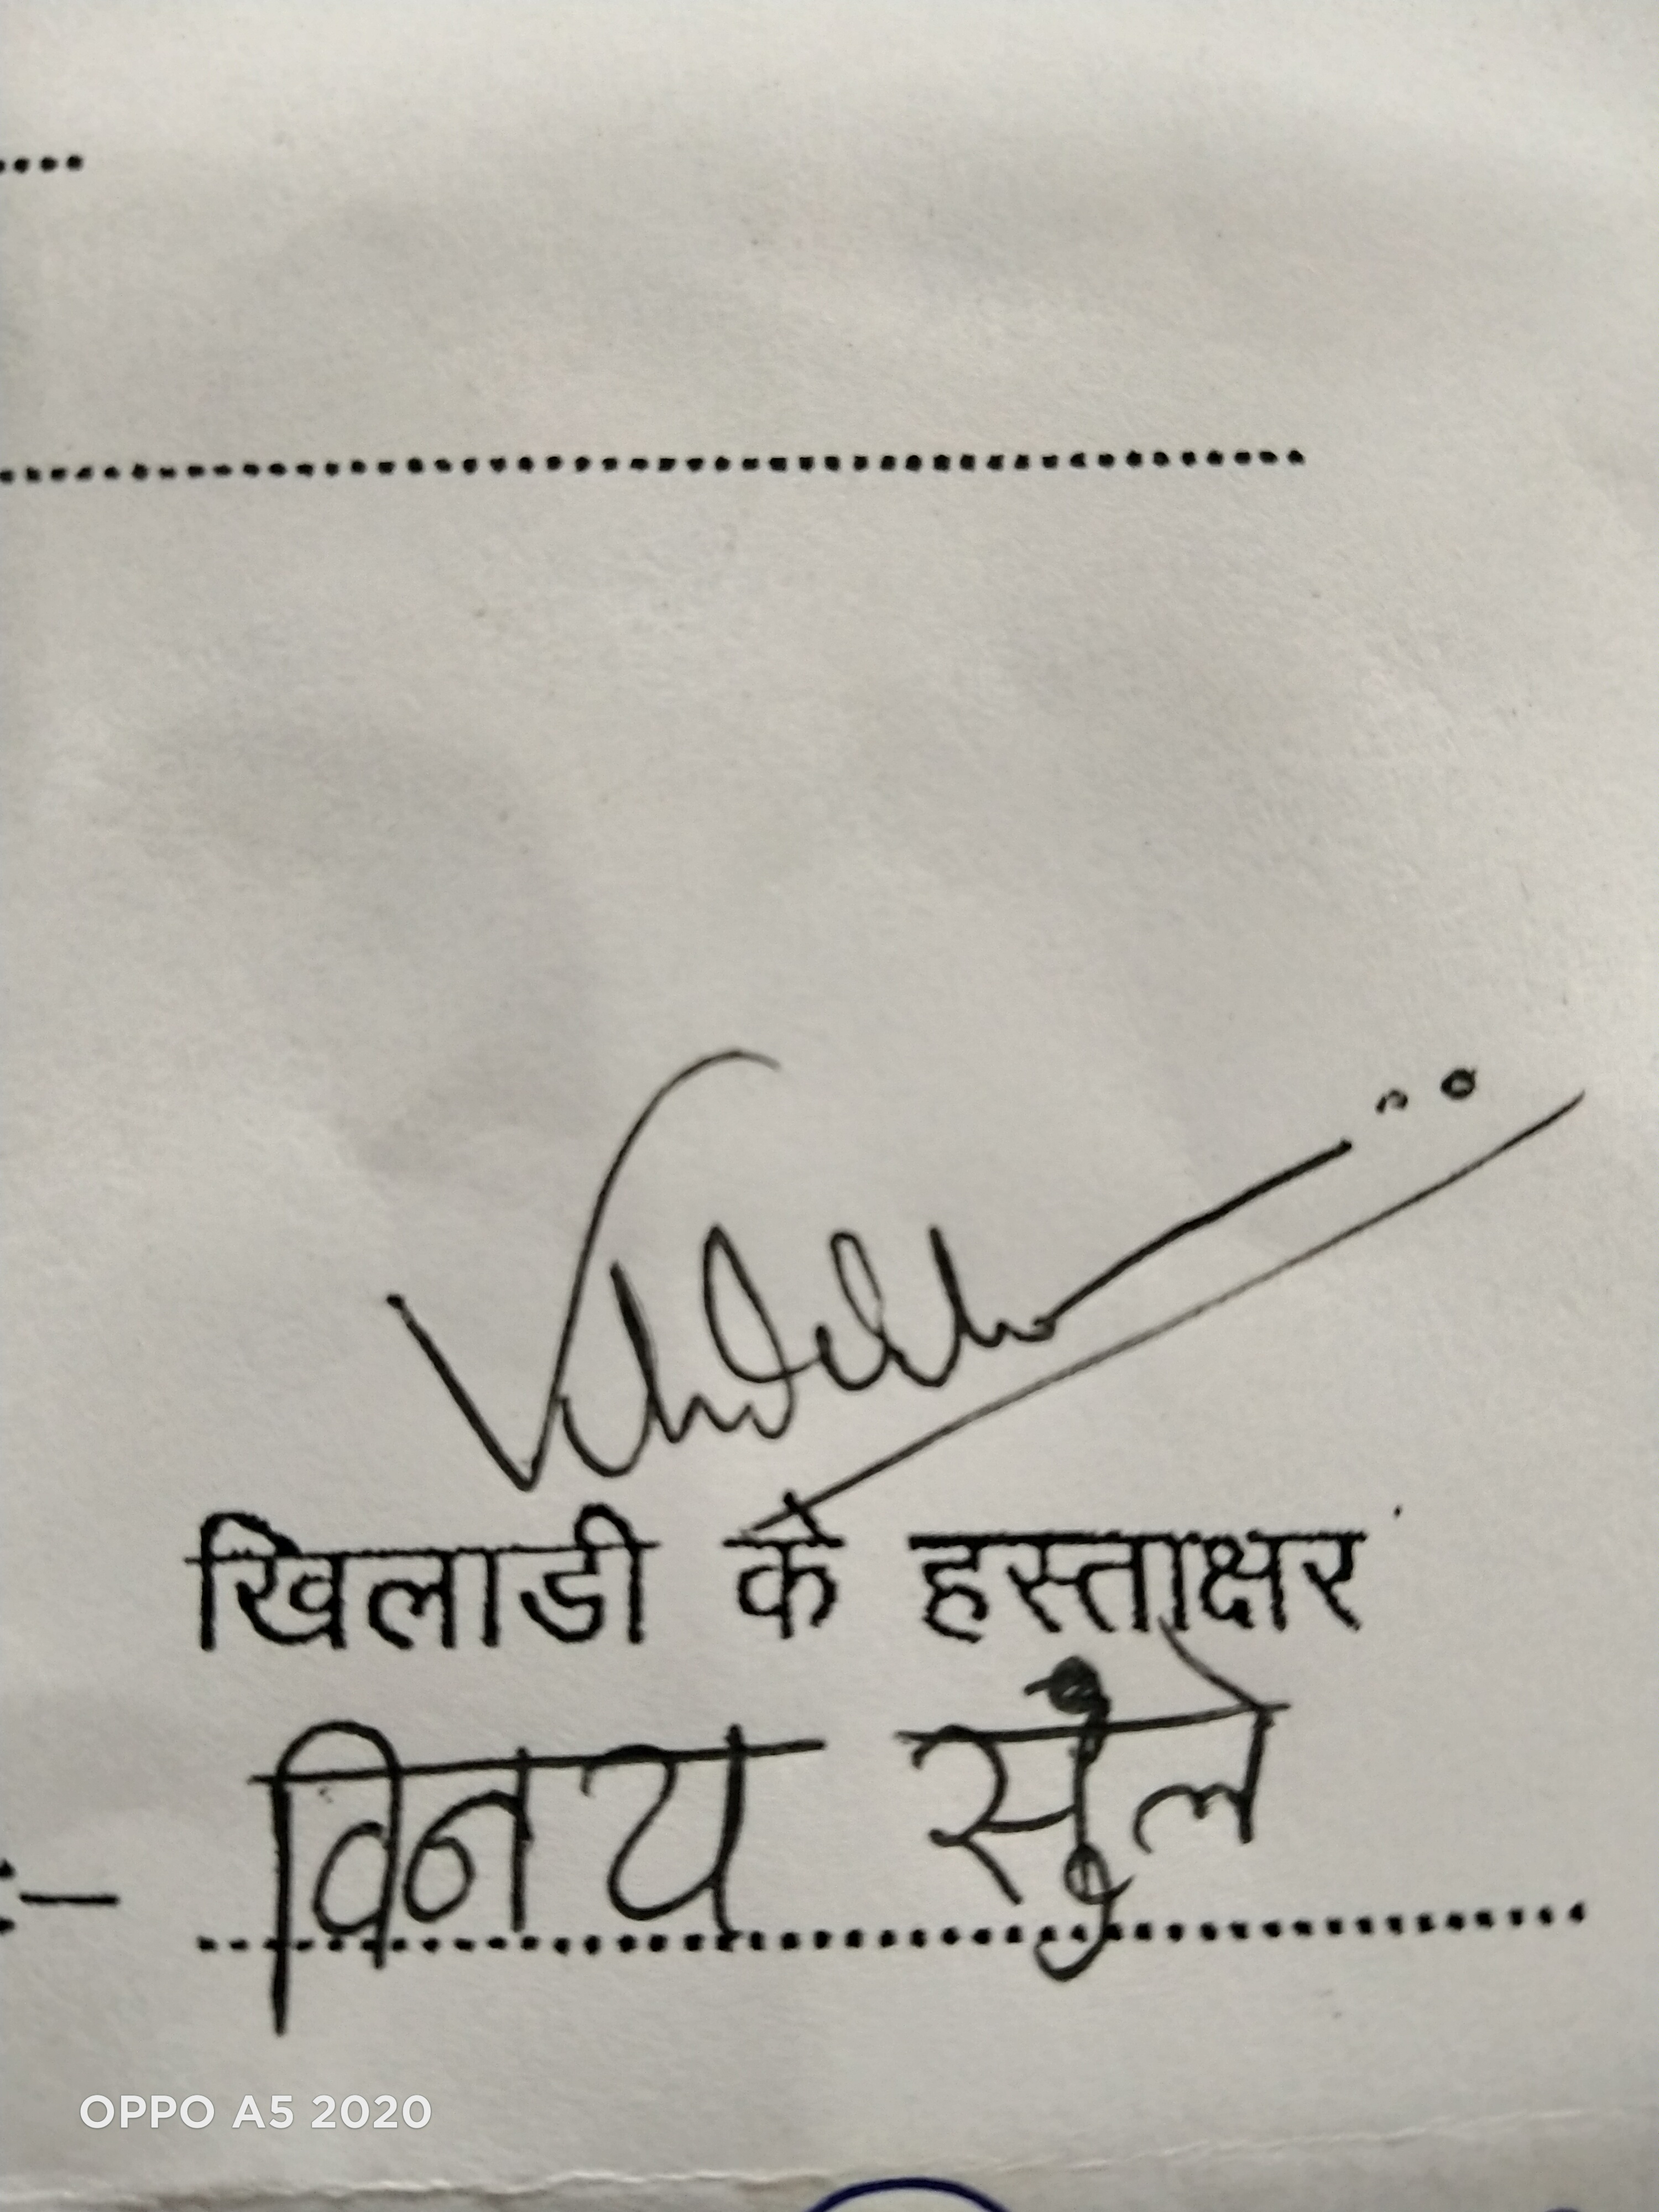 खिलाडी के हस्ताक्षर
:- विनय सुले
OPPO A5 2020